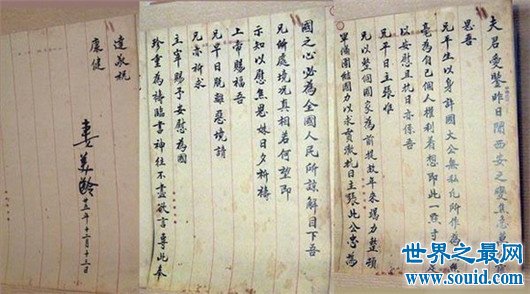 夫君愛鑒昨日聞西安之變焦急萬
思吾
兄平生以身許國大公無私凡所作為
毫為自己個人權利着想即此一點寸
以安慰且抗日亦係吾
兄平日主張惟
兄以整個國家為前提故年來竭力整頓
軍備團結國力以求貫徹抗日主張此公忠為
國之心必為全國人民所諒解目下吾
兄所處境況真相若何望即
示知以慰焦思妹日夕祈禱
上帝賜福吾
兄早日脫離惡境請
兄亦祈求
主宰賜予安慰為國
珍重為禱臨書神往不盡欲言專此奉
達敬祝
康健
妻美齡
廿五年十二月十三日
世界之最网
www.souid.com